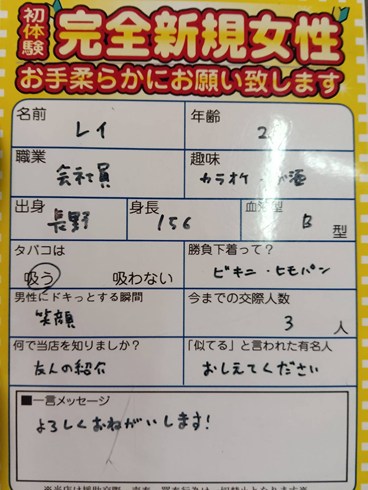 初体験
完全新規女性
お手柔らかにお願い致します
名前
レイ
年齢
2
職業
会社員
趣味
カラオケ 酒
出身
長野
身長
156
血液型
B 型
タバコは
吸う 吸わない
勝負下着って?
ビキニ・ヒモパン
男性にドキっとする瞬間
笑顔
今までの交際人数
3 人
何で当店を知りましたか?
友人の紹介
「似てる」と言われた有名人
おしえてください
■一言メッセージ
よろしくおねがいします!